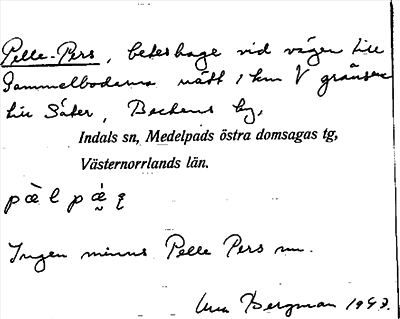 Pelle-Pers, beteshage vid vägen till
Gammelbodarna nått 1 km V gränsen
till Säter, Backens by,
Indals sn, Medelpads östra domsagas tg,
Västernorrlands län.
Ingen minns Pelle Pers nu.
Bergman 1947.